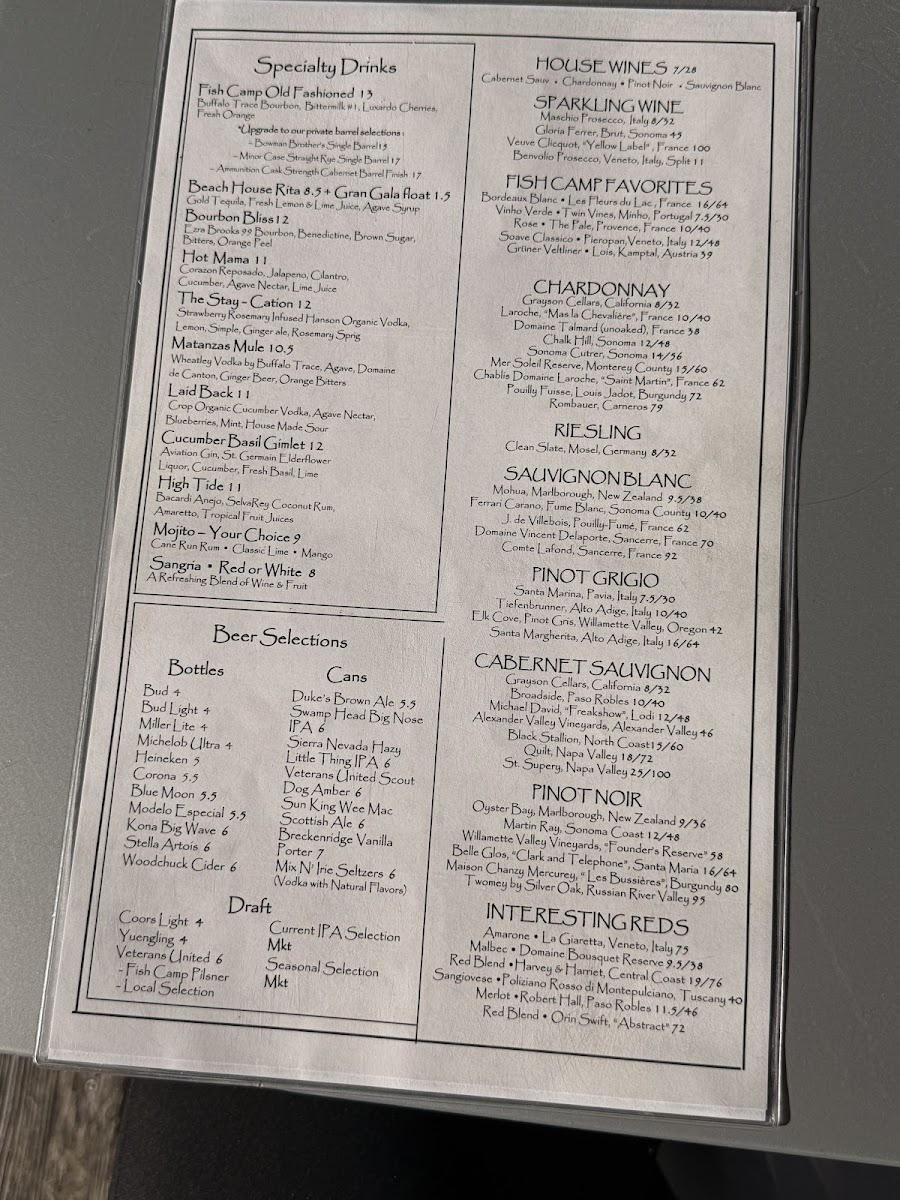 Specialty Drinks
Fish Camp Old Fashioned 13
Buffalo Trace Bourbon, Bittermilk #1, Luxardo Cherries,
Fresh Orange
*Upgrade to our private barrel selections:
- Bowman Brother's Single Barrel 15
- Minor Case Straight Rye Single Barrel 17
- Ammunition Cask Strength Cabernet Barrel Finish 17
Beach House Rita 8.5 + Gran Gala float 1.5
Gold Tequila, Fresh Lemon & Lime Juice, Agave Syrup
Bourbon Bliss 12
Ezra Brooks 99 Bourbon, Benedictine, Brown Sugar,
Bitters, Orange Peel
Hot Mama 11
Corazon Reposado, Jalapeno, Cilantro,
Cucumber, Agave Nectar, Lime Juice
The Stay - Cation 12
Strawberry Rosemary Infused Hanson Organic Vodka,
Lemon, Simple, Ginger ale, Rosemary Sprig
Matanzas Mule 10.5
Wheatley Vodka by Buffalo Trace, Agave, Domaine
de Canton, Ginger Beer, Orange Bitters
Laid Back 11
Crop Organic Cucumber Vodka, Agave Nectar,
Blueberries, Mint, House Made Sour
Cucumber Basil Gimlet 12
Aviation Gin, St. Germain Elderflower
Liquor, Cucumber, Fresh Basil, Lime
High Tide 11
Bacardi Anejo, SelvaRey Coconut Rum,
Amaretto, Tropical Fruit Juices
Mojito – Your Choice 9
Cane Run Rum • Classic Lime • Mango
Sangria • Red or White 8
A Refreshing Blend of Wine & Fruit
Beer Selections
Bottles
Bud 4
Bud Light 4
Miller Lite 4
Michelob Ultra 4
Heineken 5
Corona 5.5
Blue Moon 5.5
Modelo Especial 5.5
Kona Big Wave 6
Stella Artois 6
Woodchuck Cider 6
Cans
Duke's Brown Ale 5.5
Swamp Head Big Nose
IPA 6
Sierra Nevada Hazy
Little Thing IPA 6
Veterans United Scout
Dog Amber 6
Sun King Wee Mac
Scottish Ale 6
Breckenridge Vanilla
Porter 7
Mix N' Irie Seltzers 6
(Vodka with Natural Flavors)
Draft
Coors Light 4
Yuengling 4
Veterans United 6
- Fish Camp Pilsner
- Local Selection
Current IPA Selection
Mkt
Seasonal Selection
Mkt
HOUSE WINES 7/28
Cabernet Sauv • Chardonnay • Pinot Noir • Sauvignon Blanc
SPARKLING WINE
Maschio Prosecco, Italy 8/32
Gloria Ferrer, Brut, Sonoma 45
Veuve Clicquot, "Yellow Label" , France 100
Benvolio Prosecco, Veneto, Italy, Split 11
FISH CAMP FAVORITES
Bordeaux Blanc • Les Fleurs du Lac , France 16/64
Vinho Verde • Twin Vines, Minho, Portugal 7.5/30
Rose • The Pale, Provence, France 10/40
Soave Classico • Pieropan, Veneto, Italy 12/48
Grüner Veltliner • Lois, Kamptal, Austria 39
CHARDONNAY
Grayson Cellars, California 8/32
Laroche, "Mas la Chevalière", France 10/40
Domaine Talmard (unoaked), France 38
Chalk Hill, Sonoma 12/48
Sonoma Cutrer, Sonoma 14/56
Mer Soleil Reserve, Monterey County 15/60
Chablis Domaine Laroche, "Saint Martin", France 62
Pouilly Fuisse, Louis Jadot, Burgundy 72
Rombauer, Carneros 79
RIESLING
Clean Slate, Mosel, Germany 8/32
SAUVIGNON BLANC
Mohua, Marlborough, New Zealand 9.5/38
Ferrari Carano, Fume Blanc, Sonoma County 10/40
J. de Villebois, Pouilly-Fumé, France 62
Domaine Vincent Delaporte, Sancerre, France 70
Comte Lafond, Sancerre, France 92
PINOT GRIGIO
Santa Marina, Pavia, Italy 7.5/30
Tiefenbrunner, Alto Adige, Italy 10/40
Elk Cove, Pinot Gris, Willamette Valley, Oregon 42
Santa Margherita, Alto Adige, Italy 16/64
CABERNET SAUVIGNON
Grayson Cellars, California 8/32
Broadside, Paso Robles 10/40
Michael David, "Freakshow", Lodi 12/48
Alexander Valley Vineyards, Alexander Valley 46
Black Stallion, North Coast 15/60
Quilt, Napa Valley 18/72
St. Supery, Napa Valley 25/100
PINOT NOIR
Oyster Bay, Marlborough, New Zealand 9/36
Martin Ray, Sonoma Coast 12/48
Willamette Valley Vineyards, "Founder's Reserve" 58
Belle Glos, "Clark and Telephone", Santa Maria 16/64
Maison Chanzy Mercurey, " Les Bussières", Burgundy 80
Twomey by Silver Oak, Russian River Valley 95
INTERESTING REDS
Amarone • La Giaretta, Veneto, Italy 75
Malbec • Domaine Bousquet Reserve 9.5/38
Red Blend • Harvey & Harriet, Central Coast 19/76
Sangiovese • Poliziano Rosso di Montepulciano, Tuscany 40
Merlot • Robert Hall, Paso Robles 11.5/46
Red Blend • Orin Swift, "Abstract" 72